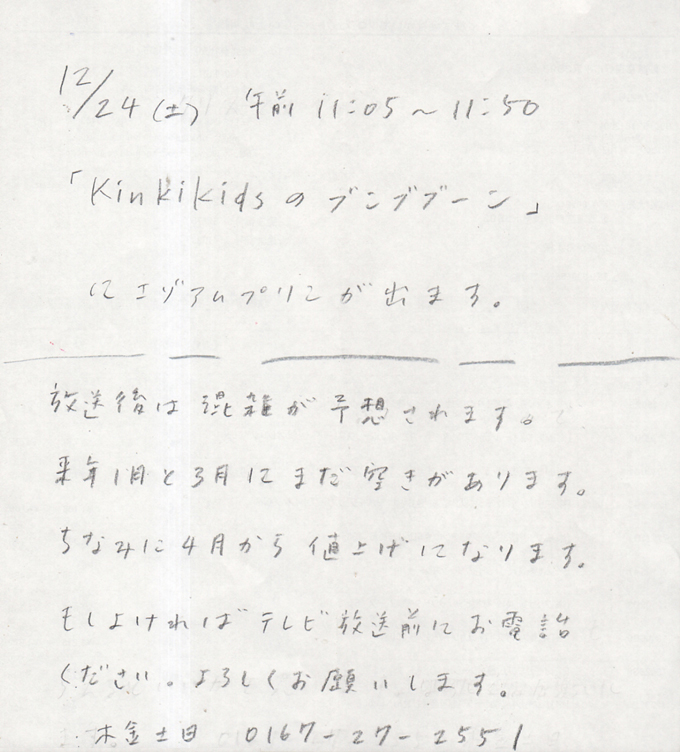 12/24(土) 午前 11:05〜11:50
「Kinkikidsのブンブブーン」
にエゾアムプリンが出ます。
放送後は混雑が予想されます。
来年1月と3月にまだ空きがあります。
ちなみに4月から値上げになります。
もしよければテレビ放送前にお電話
ください。よろしくお願いします。
木金土日 0167-27-2551